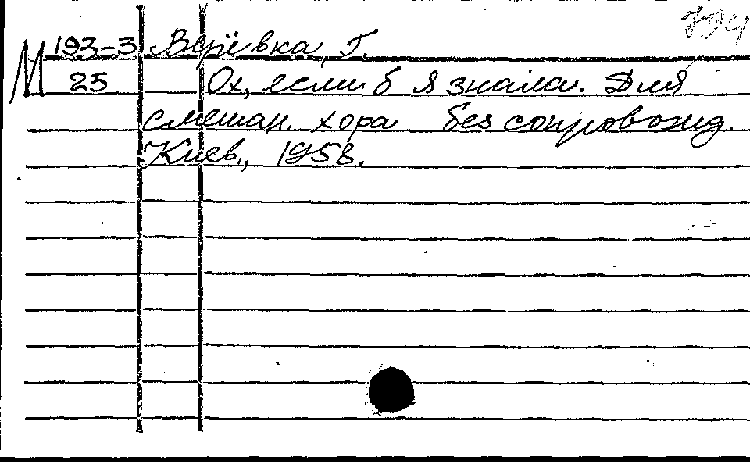 М 193-3 Верёвка, Г.
25 Ох, если б я знала. Для
смешан. хора без сопровожд.
Киев, 1958.